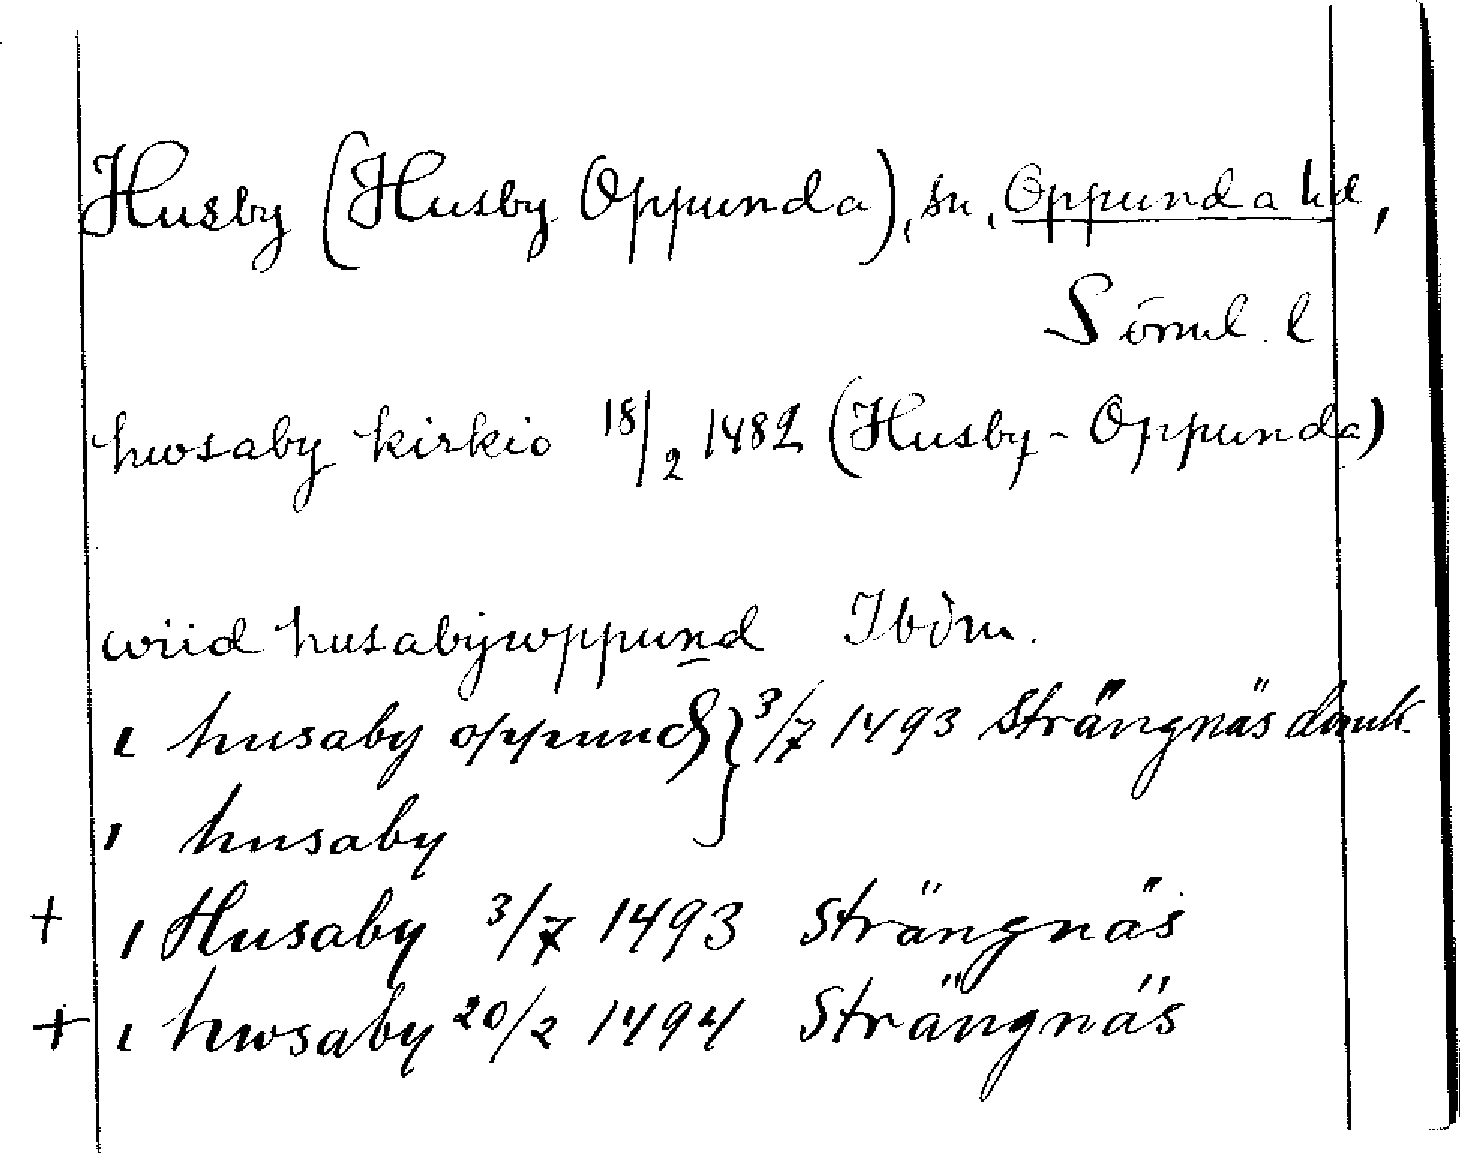 Husby (Husby Oppunda), sn, Oppunda hd,
Sörml. l
hwsaby kirkio 18/2 1482 (Husby-Oppunda)
wiid husabywppund Ibdm.
i husaby oppund } 3/7 1493 Strängnäs domk.
i husaby
+ i Husaby 3/7 1493 Strängnäs
+ i hwsaby 20/2 1494 Strängnäs